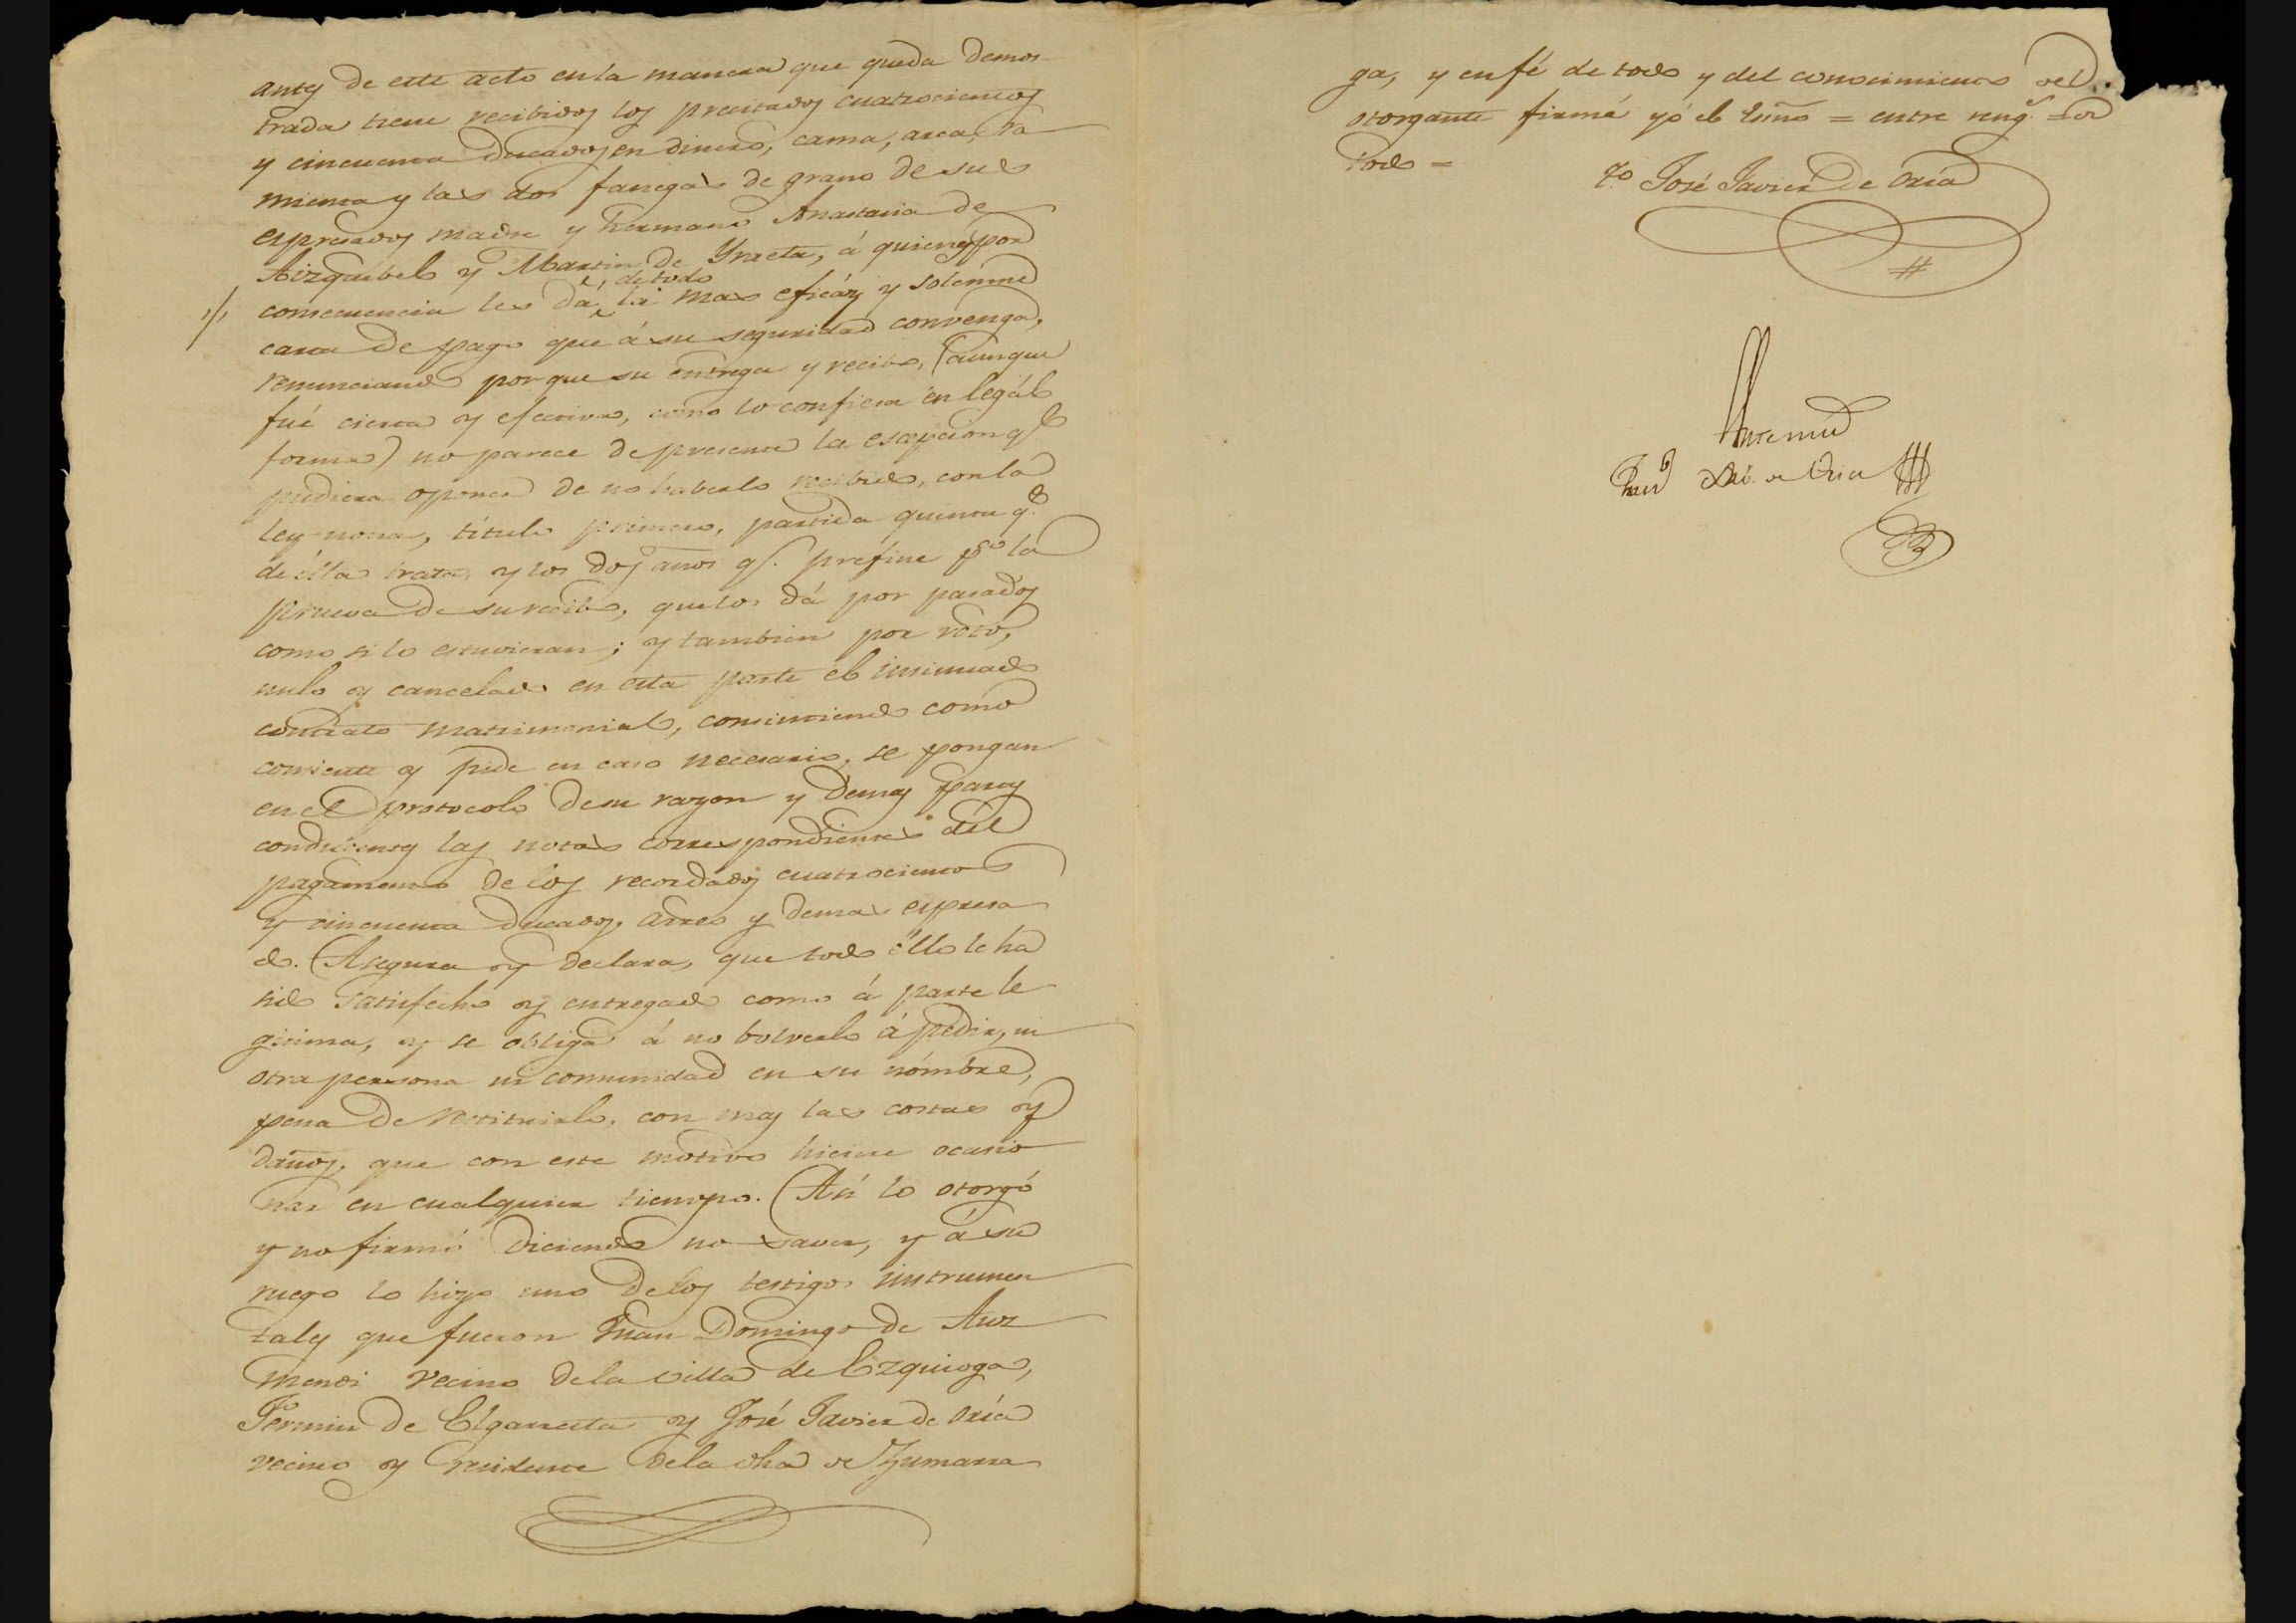 antes de este acto en la manera que queda demos
trada tiene recibidos los precitados cuatrocientos
y cincuenta ducados en dinero, cama, arca, ra
mienta y las dos fanegas de grano de sus
espresados madre y hermano Anastasia de
Aizquibel y Martin de Yraeta, á quienes por
consecuencia les dá, de todo la mas eficáz y solémne
carta de pago que á su seguridad convenga,
renunciando por que su entrega y recibo, (aunque
fué cierta y efectiva, como lo confiesa en legál
forma) no parece de presente la escepcion qe
pudiera oponer de no haberlo recibido, con la
ley nona, título primero, partida quinta qe
de élla trata, y los dos años qe. prefine pa la
prueva de su recibo, que los dá por pasados
como si lo estuvieran; y tambien por roto,
nulo y cancelado en esta parte el insinuado
contrato matrimonial, consintiendo como
consiente y pide en caso necesario, se pongan
en el protocolo de su razon y demas partes
conducentes las notas correspondientes del
pagamento de los recordados cuatrocientos
y cincuenta ducados, arreo y demas espresa
do. Asegura y declara, que todo éllo le ha
sido satisfecho y entregado como á parte le
gitima, y se obliga á no bolverlo á pedir, ni
otra persona ni comunidad en su nómbre,
pena de restituirlo, con mas las costas y
daños, que con este motivo hiciere ocasio
nar en cualquier tiempo. Así lo otorgó
y no firmó diciendo no saver, y á su
ruego lo hizo uno de los testigos instrumen
tales que fueron Juan Domingo de Auz
mendi vecino de la villa de Ezquioga,
Fermin de Elgarresta y José Javier de Oria
vecino y residente de la dha de Zumarra
ga, y en fé de todo y del conocimiento del
otorgante firmé yó el Esño = entre rengs. = de
todo =
To José Javier de Oria
Ante mi
de Oria